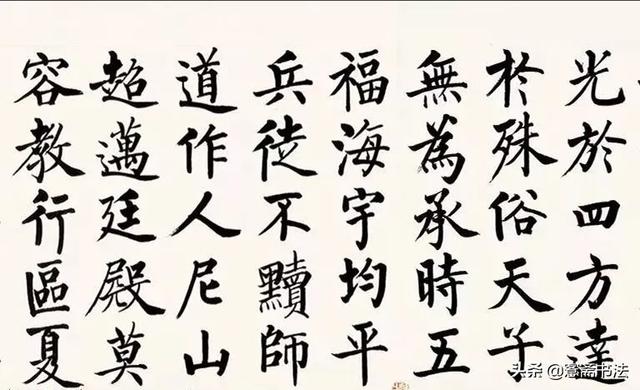 光於四方達
於殊俗天子
無為承時五
福海宇均平
兵徒不黷師
道作人尼山
超邁廷殿莫
容教行區夏
头条@騫斋书法